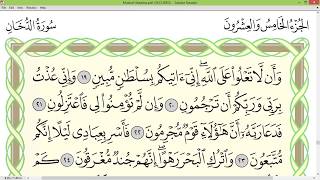 الجُزْءُ الخَامِسُ وَالعِشْرُونَ
سُورَةُ الدُّخَانِ
وَأَن لَّا تَعْلُوا۟ عَلَى ٱللَّهِ ۖ إِنِّىٓ ءَاتِيكُم بِسُلْطَـٰنٍ مُّبِينٍ ١٩ وَإِنِّى عُذْتُ
بِرَبِّى وَرَبِّكُمْ أَن تَرْجُمُونِ ٢٠ وَإِن لَّمْ تُؤْمِنُوا۟ لِى فَٱعْتَزِلُونِ ٢١
فَدَعَا رَبَّهُۥٓ أَنَّ هَـٰٓؤُلَآءِ قَوْمٌ مُّجْرِمُونَ ٢٢ فَأَسْرِ بِعِبَادِى لَيْلًا إِنَّكُم
مُّتَّبَعُونَ ٢٣ وَٱتْرُكِ ٱلْبَحْرَ رَهْوًا ۖ إِنَّهُمْ جُندٌ مُّغْرَقُونَ ٢٤ كَمْ